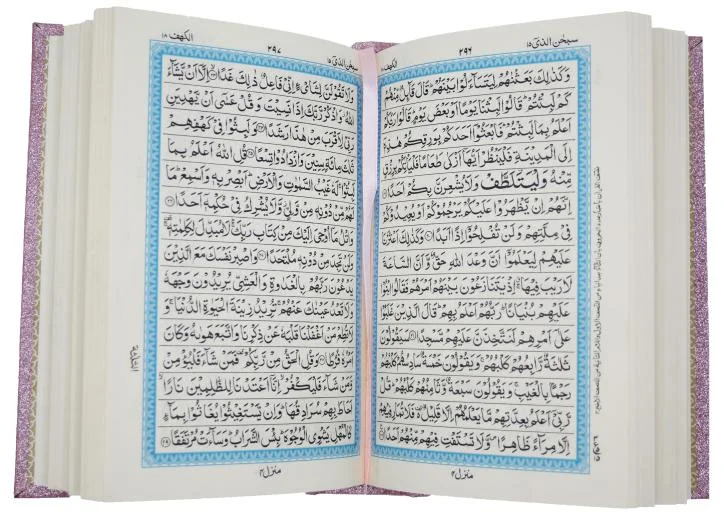 سبحٰن الذی ١٥
٢٩٦
الکهف ١٨
وَكَذٰلِكَ بَعَثْنٰهُمْ لِيَتَسَآءَلُوْا بَيْنَهُمْ ؕ قَالَ قَآئِلٌ مِّنْهُمْ
كَمْ لَبِثْتُمْ ؕ قَالُوْا لَبِثْنَا يَوْمًا اَوْ بَعْضَ يَوْمٍ ؕ قَالُوْا رَبُّكُمْ
اَعْلَمُ بِمَا لَبِثْتُمْ ؕ فَابْعَثُوْۤا اَحَدَكُمْ بِوَرِقِكُمْ هٰذِهٖۤ
اِلَى الْمَدِيْنَةِ فَلْيَنْظُرْ اَيُّهَاۤ اَزْكٰى طَعَامًا فَلْيَاْتِكُمْ بِرِزْقٍ
مِّنْهُ وَلْيَتَلَطَّفْ وَلَا يُشْعِرَنَّ بِكُمْ اَحَدًا ۝۱۹
اِنَّهُمْ اِنْ يَّظْهَرُوْا عَلَيْكُمْ يَرْجُمُوْكُمْ اَوْ يُعِيْدُوْكُمْ
فِيْ مِلَّتِهِمْ وَلَنْ تُفْلِحُوْۤا اِذًا اَبَدًا ۝۲۰ وَكَذٰلِكَ اَعْثَرْنَا
عَلَيْهِمْ لِيَعْلَمُوْۤا اَنَّ وَعْدَ اللّٰهِ حَقٌّ وَّاَنَّ السَّاعَةَ
لَا رَيْبَ فِيْهَا ۚ اِذْ يَتَنَازَعُوْنَ بَيْنَهُمْ اَمْرَهُمْ فَقَالُوا ابْنُوْا
عَلَيْهِمْ بُنْيَانًا ؕ رَبُّهُمْ اَعْلَمُ بِهِمْ ؕ قَالَ الَّذِيْنَ غَلَبُوْا
عَلٰٓى اَمْرِهِمْ لَنَتَّخِذَنَّ عَلَيْهِمْ مَّسْجِدًا ۝۲۱ سَيَقُوْلُوْنَ
ثَلٰثَةٌ رَّابِعُهُمْ كَلْبُهُمْ ۚ وَيَقُوْلُوْنَ خَمْسَةٌ سَادِسُهُمْ كَلْبُهُمْ
رَجْمًۢا بِالْغَيْبِ ۚ وَيَقُوْلُوْنَ سَبْعَةٌ وَّثَامِنُهُمْ كَلْبُهُمْ ؕ قُلْ
رَّبِّيْۤ اَعْلَمُ بِعِدَّتِهِمْ مَّا يَعْلَمُهُمْ اِلَّا قَلِيْلٌ ۫ فَلَا تُمَارِ فِيْهِمْ
اِلَّا مِرَآءً ظَاهِرًا ۪ وَّلَا تَسْتَفْتِ فِيْهِمْ مِّنْهُمْ اَحَدًا ۝۲۲
منزل ٤
سبحٰن الذی ١٥
٢٩٧
الکهف ١٨
وَلَا تَقُوْلَنَّ لِشَايْءٍ اِنِّيْ فَاعِلٌ ذٰلِكَ غَدًا ۝۲۳ اِلَّاۤ اَنْ يَّشَآءَ
اللّٰهُ ؗ وَاذْكُرْ رَّبَّكَ اِذَا نَسِيْتَ وَقُلْ عَسٰٓى اَنْ يَّهْدِيَنِ
رَبِّيْ لِاَقْرَبَ مِنْ هٰذَا رَشَدًا ۝۲۴ وَلَبِثُوْا فِيْ كَهْفِهِمْ
ثَلٰثَ مِائَةٍ سِنِيْنَ وَازْدَادُوْا تِسْعًا ۝۲۵ قُلِ اللّٰهُ اَعْلَمُ بِمَا
لَبِثُوْا ۚ لَهٗ غَيْبُ السَّمٰوٰتِ وَالْاَرْضِ ؕ اَبْصِرْ بِهٖ وَاَسْمِعْ ؕ مَا
لَهُمْ مِّنْ دُوْنِهٖ مِنْ وَّلِيٍّ ؗ وَّلَا يُشْرِكُ فِيْ حُكْمِهٖۤ اَحَدًا ۝۲۶
وَاتْلُ مَاۤ اُوْحِيَ اِلَيْكَ مِنْ كِتَابِ رَبِّكَ ؕ لَا مُبَدِّلَ لِكَلِمٰتِهٖ ۚ
وَلَنْ تَجِدَ مِنْ دُوْنِهٖ مُلْتَحَدًا ۝۲۷ وَاصْبِرْ نَفْسَكَ مَعَ الَّذِيْنَ
يَدْعُوْنَ رَبَّهُمْ بِالْغَدٰوةِ وَالْعَشِيِّ يُرِيْدُوْنَ وَجْهَهٗ
وَلَا تَعْدُ عَيْنٰكَ عَنْهُمْ ۚ تُرِيْدُ زِيْنَةَ الْحَيٰوةِ الدُّنْيَا ۚ
وَلَا تُطِعْ مَنْ اَغْفَلْنَا قَلْبَهٗ عَنْ ذِكْرِنَا وَاتَّبَعَ هَوٰىهُ وَكَانَ
اَمْرُهٗ فُرُطًا ۝۲۸ وَقُلِ الْحَقُّ مِنْ رَّبِّكُمْ ۫ فَمَنْ شَآءَ فَلْيُؤْمِنْ
وَّمَنْ شَآءَ فَلْيَكْفُرْ ۙ اِنَّاۤ اَعْتَدْنَا لِلظّٰلِمِيْنَ نَارًا ۙ
اَحَاطَ بِهِمْ سُرَادِقُهَا ؕ وَاِنْ يَّسْتَغِيْثُوْا يُغَاثُوْا بِمَآءٍ
كَالْمُهْلِ يَشْوِي الْوُجُوْهَ ؕ بِئْسَ الشَّرَابُ ؕ وَسَآءَتْ مُرْتَفَقًا ۝۲۹
منزل ٤